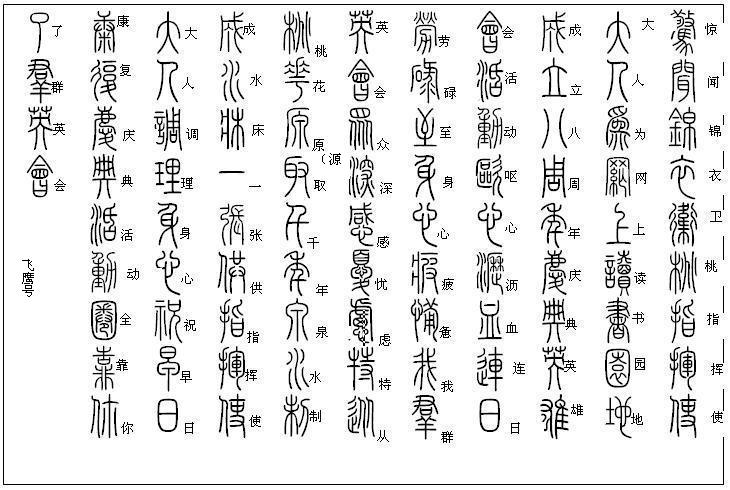 惊闻锦衣卫桃指挥使
大人为网上读书园地
成立八周年庆典英雄
会活动呕心沥血连日
劳碌至身心疲惫我群
英会众深感忧虑特从
桃花原(源取千年泉水制
成水床一张供指挥使
大人调理身心祝早日
康复庆典活动全靠你
了群英会
飞鹰号